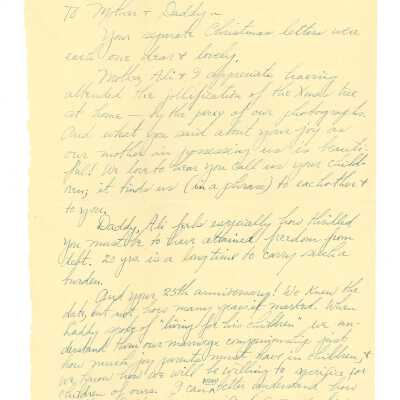 To Mother & Daddy ~
Your separate Christmas letters were
each one dear & lovely.
Mother, Ali & I appreciate having
attended the jollification of the Xmas tree
at home — by the proxy of our photographs.
And what you said about your joy as
our mother in possessing us is beauti-
ful! We love to hear you call us your child-
ren; it binds us (in a phrase) to eachother &
to you.
Daddy, Ali feels especially how thrilled
you must be to have attained freedom from
debt. 20 yrs. is a long time to carry such a
burden.
And your 25th anniversary! We knew the
date, but not how many years it marked. When
Daddy spoke of "living for his children" we un-
derstand from our marriage companionship just
how much joy parents must have in children, &
we know how we will be willing to sacrifice for
children of ours. I can now better understand how